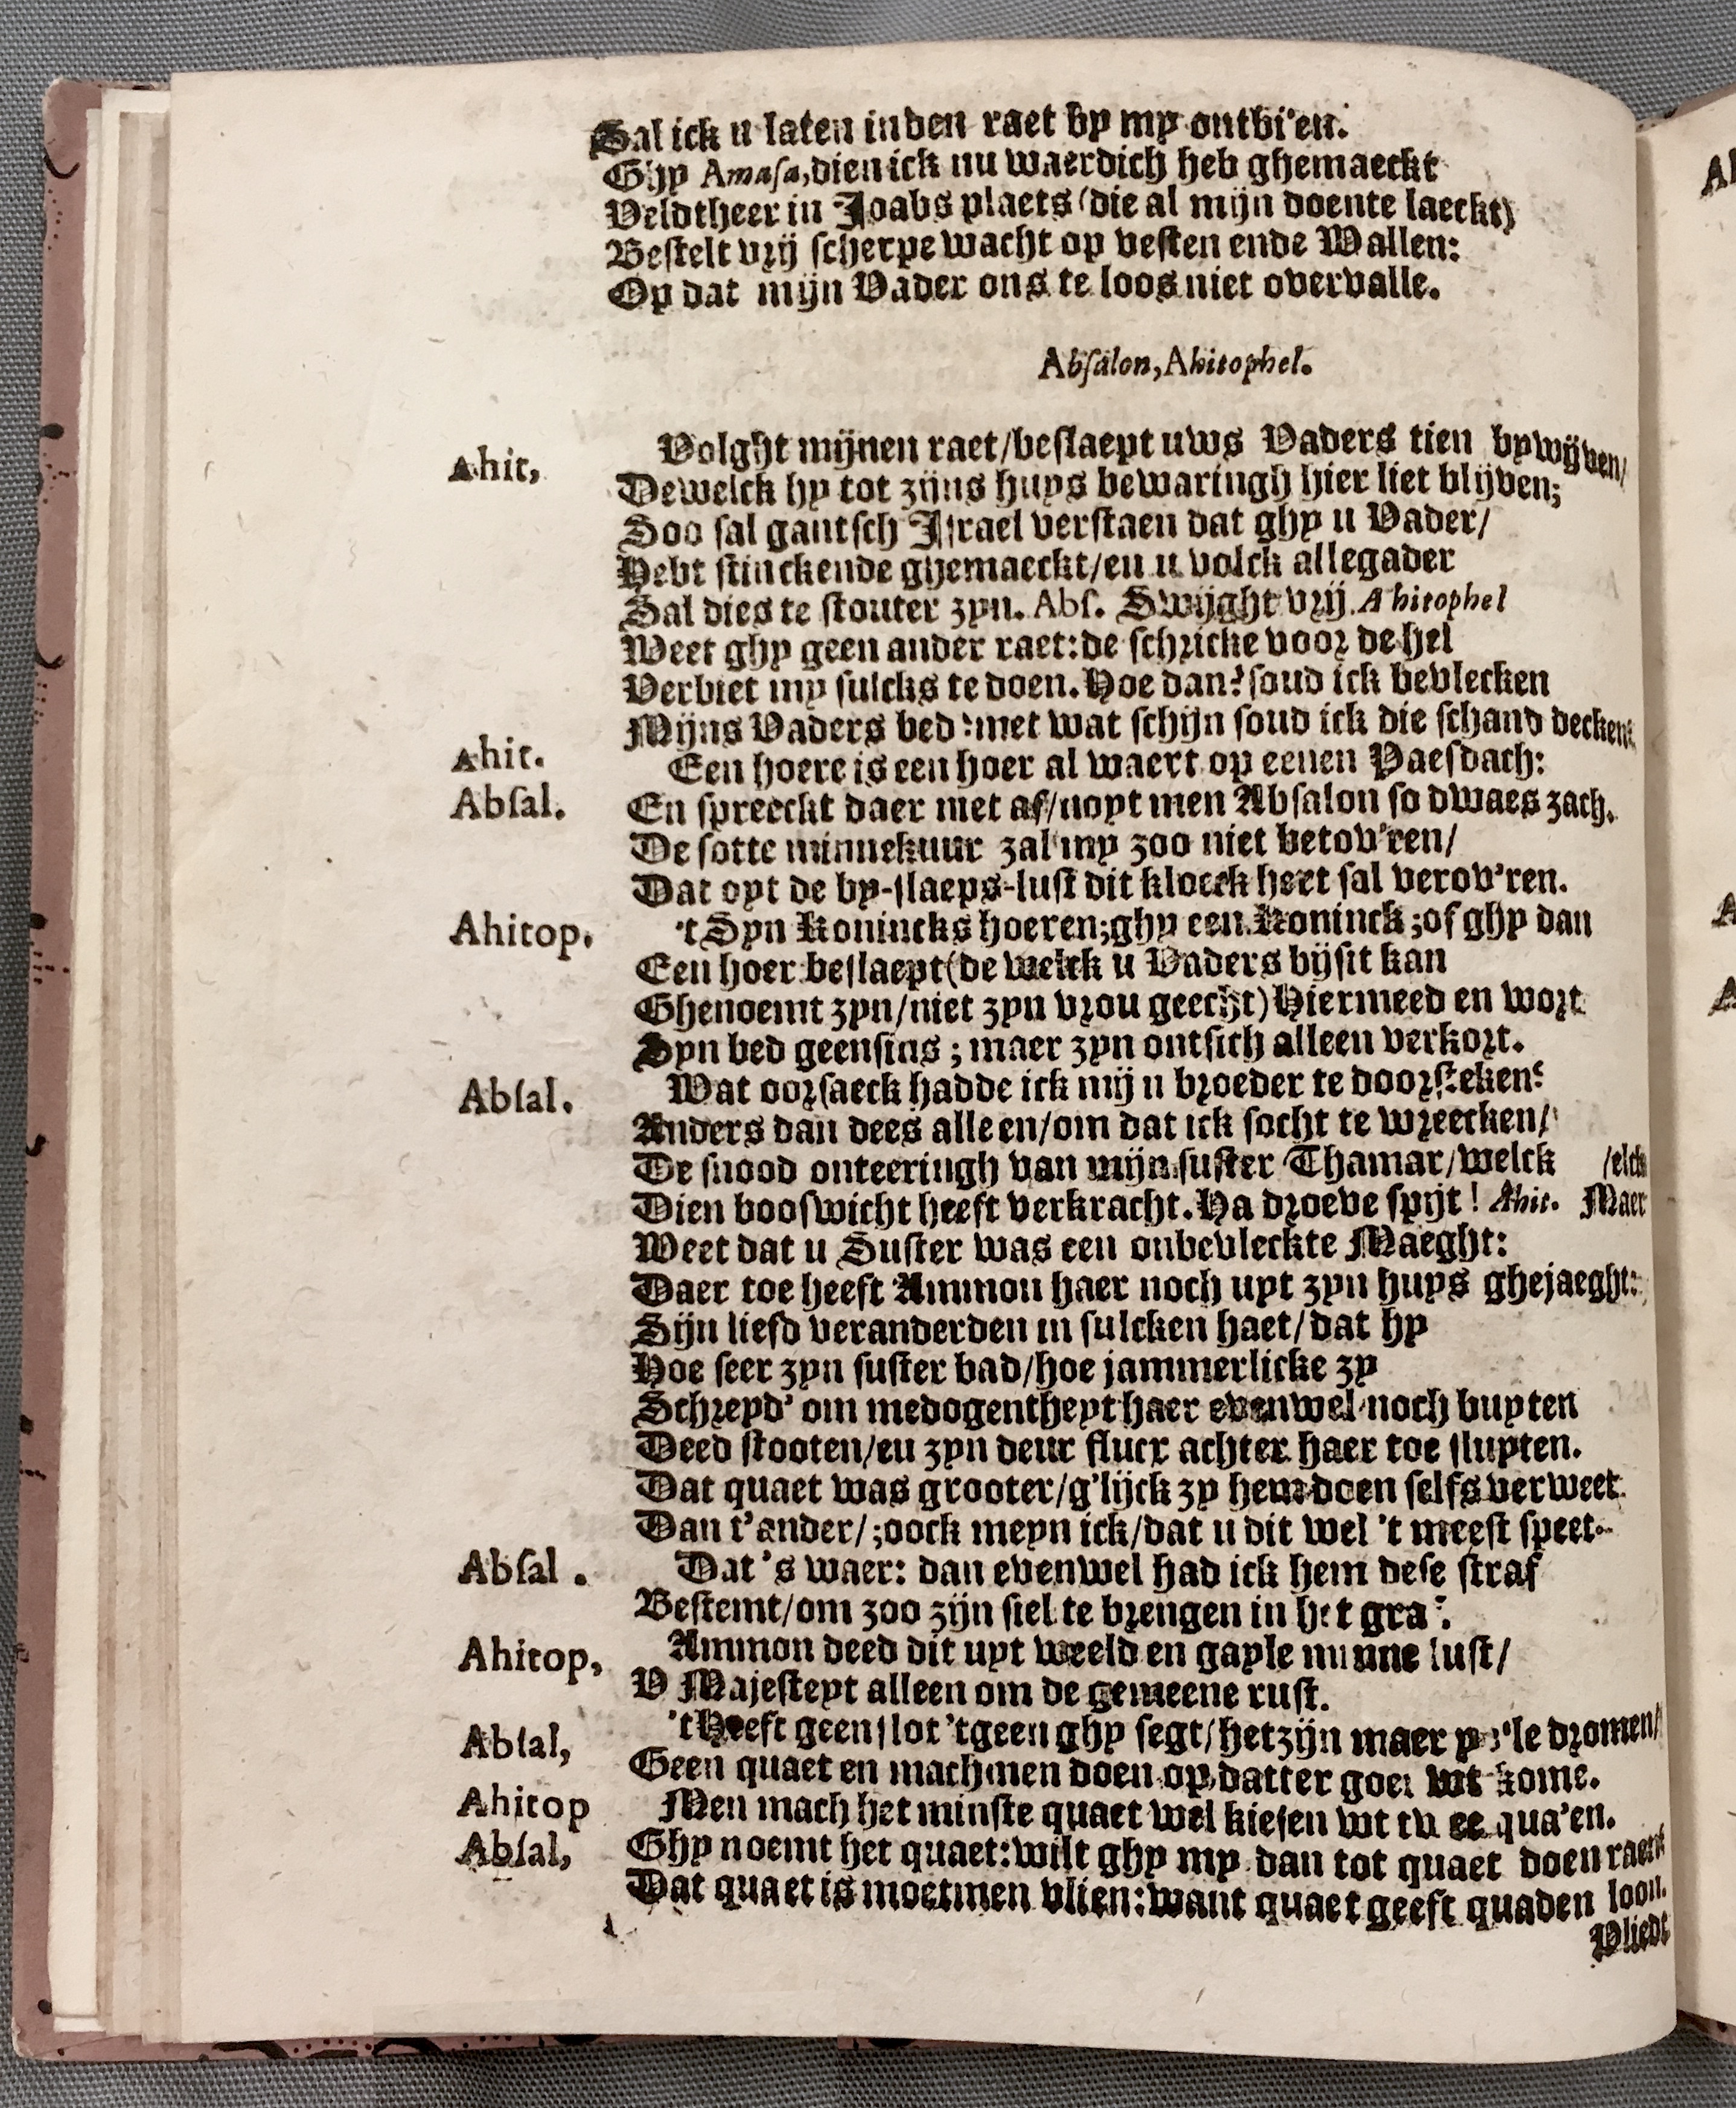 Sal ick u laten inden raet by my ontbi'en.
Ghy Amasa, dien ick nu waerdich heb ghemaeckt
Veldtheer in Joabs plaets (die al mijn doente laeckt)
Bestelt vrij scherpe wacht op vesten ende Wallen:
Op dat mijn Vader ons te loos niet overvalle.
Absalon, Ahitophel.
Ahit, Volght mijnen raet/beslaept uws Vaders tien bywijven/
Dewelck hy tot zijns huys bewaringh hier liet blijven;
Soo sal gantsch Israel verstaen dat ghy u Vader/
Hebt stinckende ghemaeckt/en u volck allegader
Sal dies te stouter zyn. Abs. Swijght vrij Ahitophel
Weet ghy geen ander raet: de schricke voor de hel
Verbiet my sulcks te doen. Hoe dan? soud ick bevlecken
Mijns Vaders bed: met wat schijn soud ick die schand decken?
Ahit. Een hoere is een hoer al waert op eenen Paesdach:
Absal. En spreeckt daer met af/noyt men Absalon so dwaes zach.
De sotte minnekuur zal my zoo niet betov'ren/
Dat oyt de by-slaeps-lust dit kloeck hert sal verov'ren.
Ahitop. 't Syn Konincks hoeren; ghy een Koninck; of ghy dan
Een hoer beslaept (de welck u Vaders bysit kan
Ghenoemt zyn/niet zyn vrou geecht) Hiermeed en wort
Syn bed geensins; maer zyn ontsich alleen verkort.
Absal. Wat oorsaeck hadde ick mij n broeder te doorsteken?
Anders dan dees alleen/om dat ick socht te wreecken/
De snood onteeringh van mijn suster Thamar/welck /elck
Dien booswicht heeft verkracht. Ha droeve spijt! Ahit. Maer
Weet dat u Suster was een onbevleckte Maeght:
Daer toe heeft Ammon haer noch uyt zyn huys ghejaeght:
Sijn liefd veranderden in sulcken haet/dat hy
Hoe seer zyn suster bad/hoe jammerlicke zy
Schreyd' om medogentheyt haer evenwel noch buyten
Deed stooten/en zyn deur flucx achter haer toe sluyten.
Dat quaet was grooter/g'lijck zy hem doen selfs verweet
Dan t'ander/;oock meyn ick/dat u dit wel 't meest speet.
Absal. Dat 's waer: dan evenwel had ick hem dese straf
Bestemt/om zoo zijn siel te brengen in het graf.
Ahitop, Ammon deed dit uyt weeld en gayle minne lust/
V Majesteyt alleen om de gemeene rust.
Absal, 't Heeft geen slot 'tgeen ghy segt/het zijn maer dromen/
Geen quaet en mach men doen op datter goet wt kome.
Ahitop Men mach het minste quaet wel kiesen wt twee qua'en.
Absal, Ghy noemt het quaet: wilt ghy my dan tot quaet doen raen?
Dat quaet is moetmen vlien: want quaet geeft quaden loon.
Vliedt